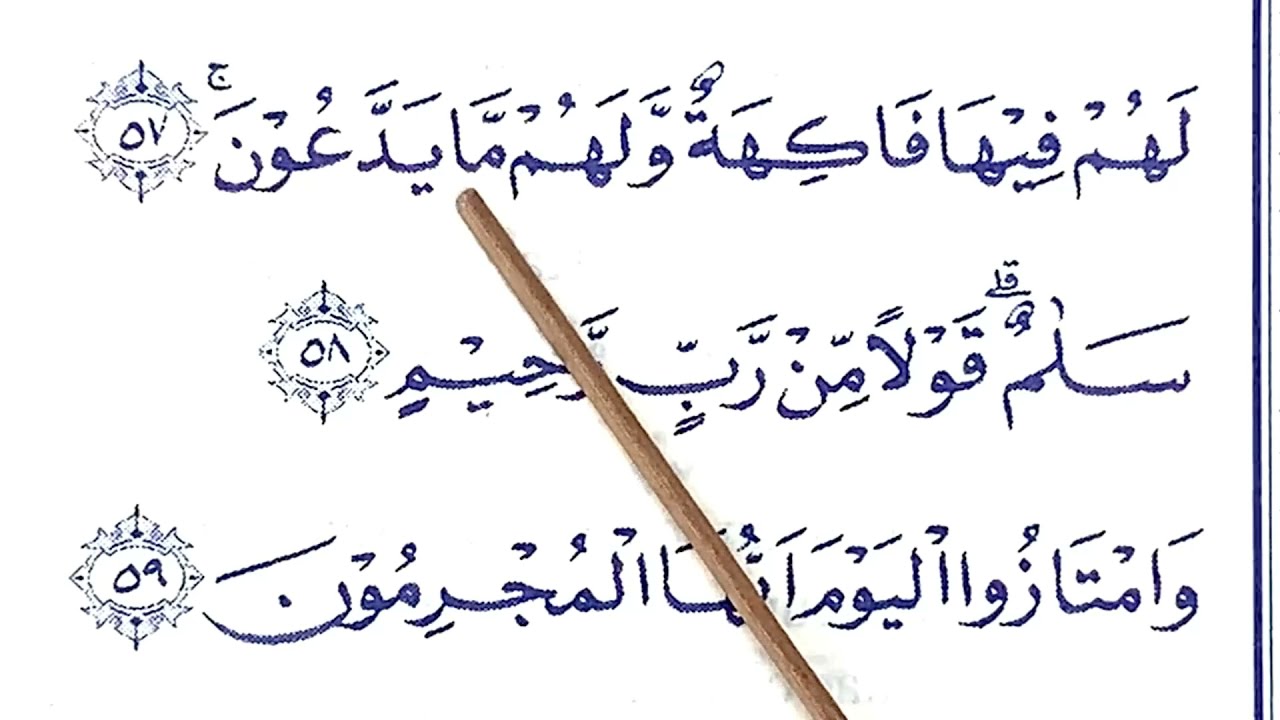 لَهُمْ فِيْهَا فَاكِهَةٌ وَّلَهُمْ مَّا يَدَّعُوْنَ ۚ ٥٧
سَلٰمٌ ۗ قَوْلًا مِّنْ رَّبٍّ رَّحِيْمٍ ٥٨
وَامْتَازُوا الْيَوْمَ اَيُّهَا الْمُجْرِمُوْنَ ٥٩